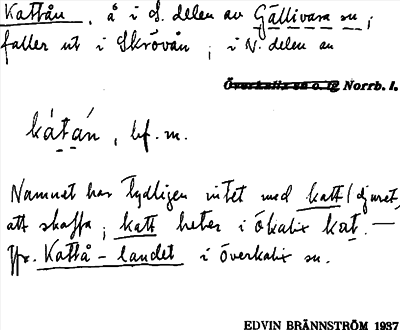 Kattån, å i S. delen av Gällivara sn;
faller ut i Skrövån; i N. delen av
Överkalix sn o. lg Norrb. l.
kátán, bf. m.
Namnet har tydligen intet med katt (djuret)
att skaffa; katt heter i ökalix kat. —
Jfr. Kattå-landet i överkalix sn.
EDVIN BRÄNNSTRÖM 1937